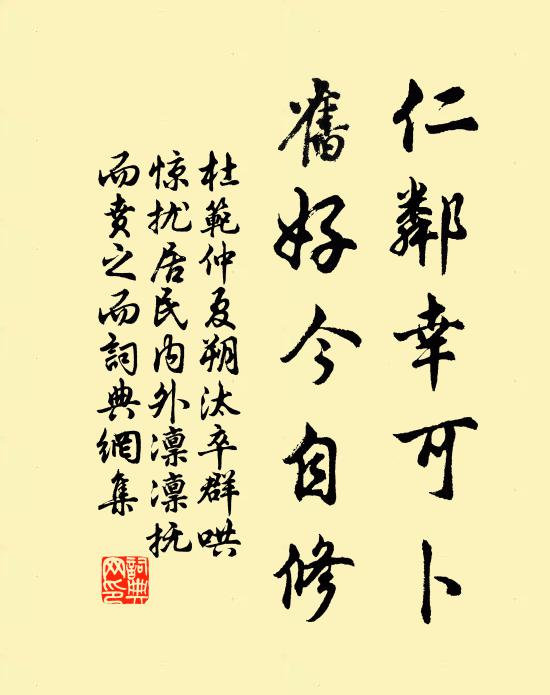 仁鄰幸可卜
舊好今自修
杜範仲夏朔汰卒群哄
惊扰居民内外凛凛抚
而贲之而詞典網集
詞典網印